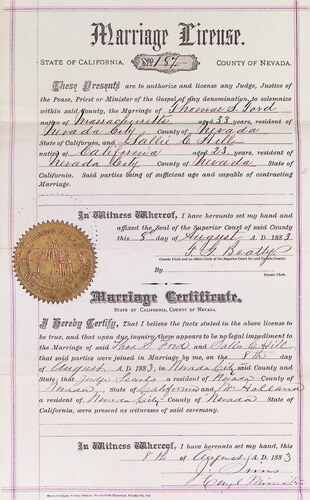 Marriage License.
STATE OF CALIFORNIA, No 187 COUNTY OF NEVADA.
These Presents are to authorize and license any Judge, Justice of
the Peace, Priest or Minister of the Gospel of any denomination, to solemnize
within said County, the Marriage of Thomas S. Ford
native of Massachusetts aged 33 resident of
Nevada City County of Nevada
State of California, and Sallie C Hill
native of California aged 23, resident of
Nevada City County of Nevada State of
California. Said parties being of sufficient age and capable of contracting
Marriage.
In Witness Whereof, I have hereunto set my hand and
affixed the Seal of the Superior Court of said County
this 8th day of August A. D. 1883
County Clerk and ex officio Clerk of the Superior Court for said Nevada County.
By
Deputy Clerk.
Marriage Certificate.
STATE OF CALIFORNIA, COUNTY OF NEVADA.
I Hereby Certify, That I believe the facts stated in the above license to
be true, and that upon due inquiry, there appears to be no legal impediment to
the Marriage of said Thos S. Ford and Sallie C. Hill
that said parties were joined in Marriage by me, on the 8th day
of August A. D. 1883, in Nevada City said County and
State; that Judge Searls a resident of Nevada County of
Nevada, State of California and Wm Holland
a resident of Nevada City County of Nevada State of
California, were present as witnesses of said ceremony.
In Witness Whereof, I have hereunto set my hand, this
8th of August A. D. 1883
J. Sims